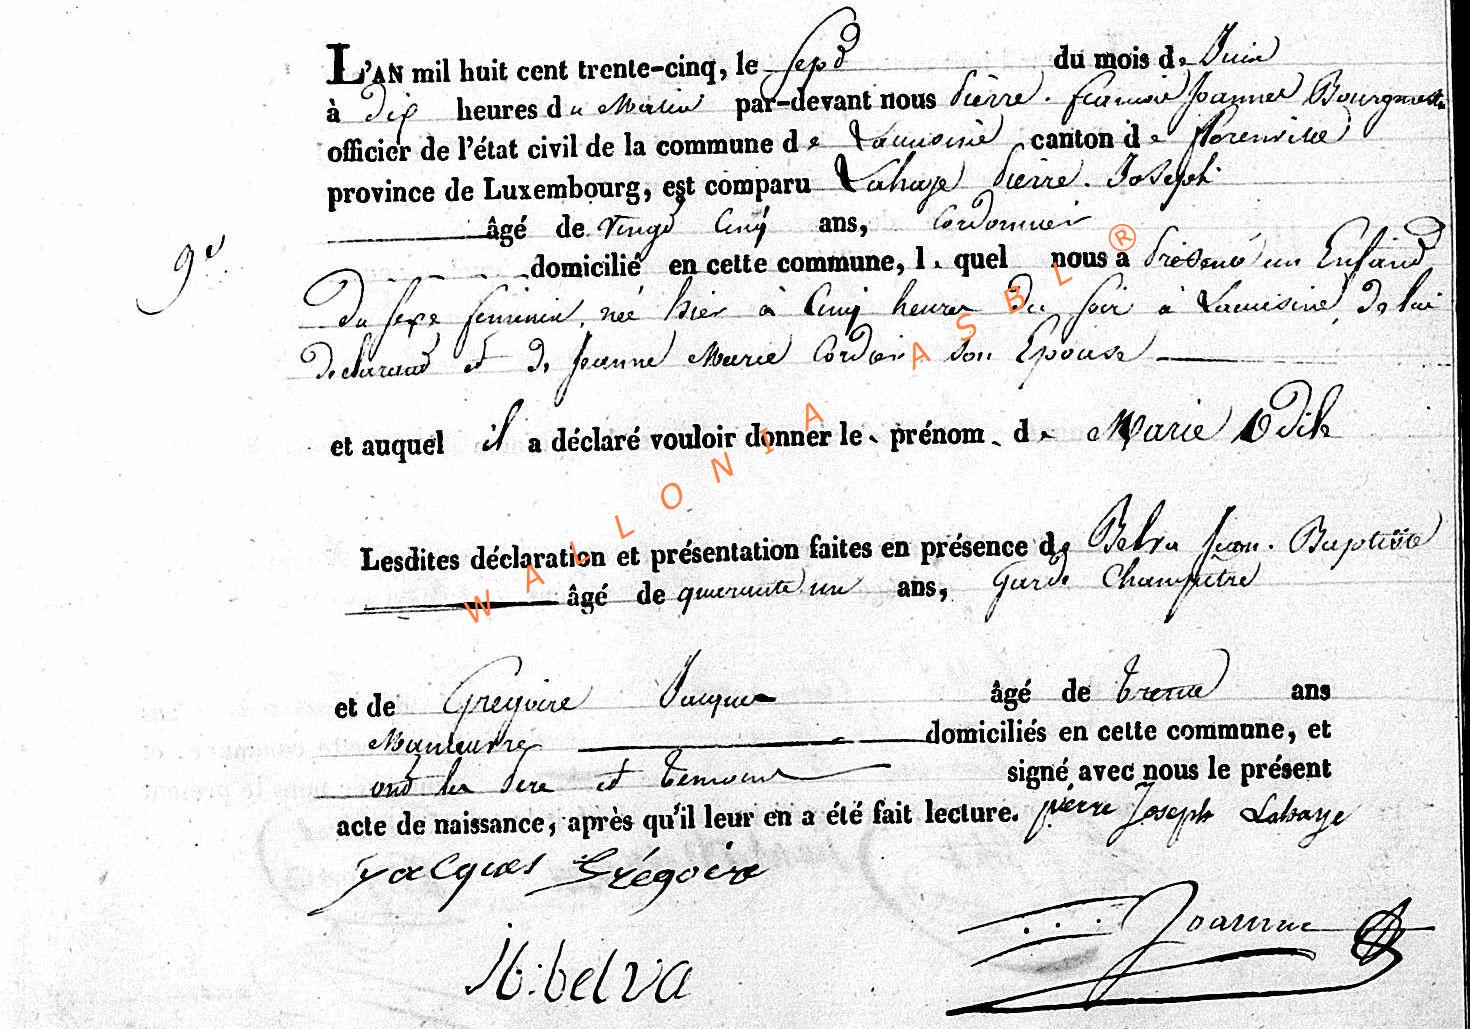 L'AN mil huit cent trente-cinq, le sept du mois de Juin
à dix heures du Matin par-devant nous Pierre. francois Joannes Bourgmestre
officier de l'état civil de la commune de Lacuisine canton de florenville
province de Luxembourg, est comparu Lahaye Pierre. Joseph
âgé de vingt Cinq ans, Cordonnier
9e
domicilié en cette commune, le quel nous a présenté un Enfant
du sexe feminin, née hier à Cinq heures du soir à Lacuisine, de lui
declarant et de Jeanne Marie Cordier son Epouse
et auquel il a déclaré vouloir donner le prénom de Marie Odile
Lesdites déclaration et présentation faites en présence de Belva Jean. Baptiste
âgé de quarante un ans, Garde Champetre
et de Gregoire Jacques âgé de trente ans
Manœuvre domiciliés en cette commune, et
ont les Pere et temoins signé avec nous le présent
acte de naissance, après qu'il leur en a été fait lecture. pierre Joseph Lahaye
Jacques Grégoire
Joannes
JB. belva
WALLONIA ASBL ®